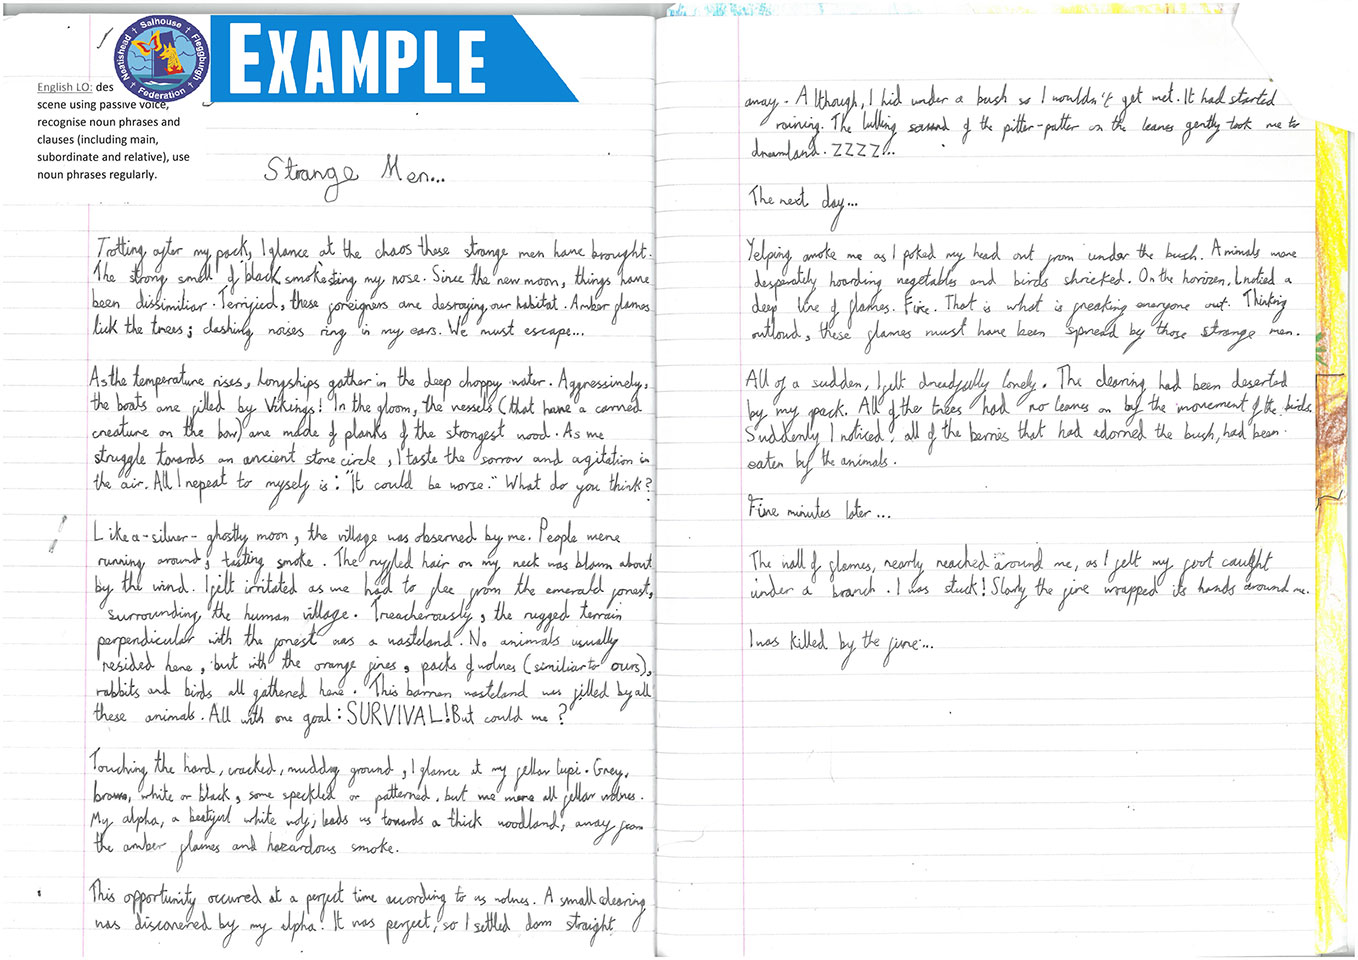 Salhouse
Neatishead
Fleggburgh
Federation
EXAMPLE
English LO: des
scene using passive voice,
recognise noun phrases and
clauses (including main,
subordinate and relative), use
noun phrases regularly.
Strange Men...
Trotting after my pack, I glance at the chaos these strange men have brought.
The strong smell of black smoke sting my nose. Since the new moon, things have
been dissimiliar. Terrified, these foreigners are desroying our habitat. Amber flames
lick the trees; clashing noises ring in my ears. We must escape...
As the temperature rises, longships gather in the deep choppy water. Aggressively,
the boats are filled by Vikings! In the gloom, the vessels (that have a carved
creature on the bow) are made of planks of the strongest wood. As we
struggle towards an ancient stone circle, I taste the sorrow and agitation in
the air. All I repeat to myself is: "It could be worse." What do you think?
Like a-silver-ghostly moon, the village was observed by me. People were
running around; tasting smoke. The ruffled hair on my neck was blown about
by the wind. I felt irritated as we had to flee from the emerald forest,
surrounding the human village. Treacherously, the rugged terrain
perpendicular with the forest was a wasteland. No animals usually
resided here, but with the orange fires, packs of wolves (similiar to ours),
rabbits and birds all gathered here. This barren wasteland was filled by all
these animals. All with one goal: SURVIVAL! But could we?
Touching the hard, cracked, muddy ground, I glance at my fellow lupi. Grey,
brown, white or black, some speckled or patterned, but we were all fellow wolves.
My alpha, a beatiful white wolf; leads us towards a thick woodland; away from
the amber flames and hazardous smoke.
This opportunity occured at a perfect time according to us wolves. A small clearing
was discovered by my alpha. It was perfect, so I settled down straight
away. Although, I hid under a bush so I wouldn't get wet. It had started
raining. The lulling sound of the pitter-patter on the leaves gently took me to
dreamland. ZZZZ...
The next day...
Yelping awoke me as I poked my head out from under the bush. Animals were
desperately hoarding vegetables and birds shricked. On the horizen, I noticed a
deep line of flames. Fire. That is what is freaking everyone out. Thinking
outloud, these flames must have been spread by those strange men.
All of a sudden, I felt dreadfully lonely. The clearing had been deserted
by my pack. All of the trees had no leaves on by the movement of the birds.
Suddenly I noticed: all of the berries that had adorned the bush, had been
eaten by the animals.
Five minutes later...
The wall of flames, nearly reached around me, as I felt my foot caught
under a branch. I was stuck! Slowly the fire wrapped its hands around me.
I was killed by the fire...